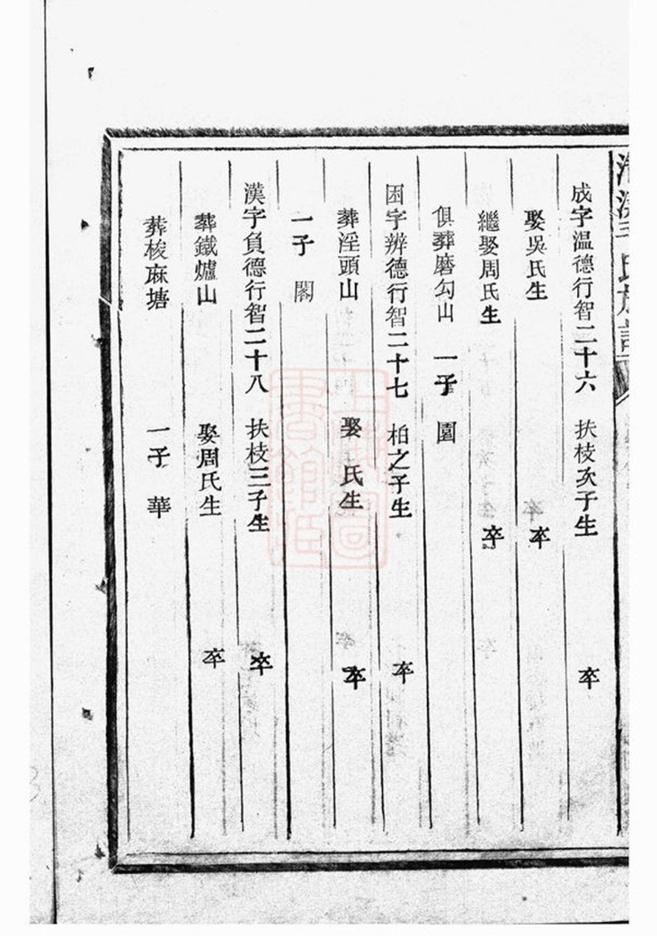 成字溫德行智二十六　扶枝次子生　卒
娶吳氏生　卒
繼娶周氏生　卒
俱葬磨勾山　一子　園
困字辨德行智二十七　柏之子生　卒
葬淫頭山　娶　氏生　卒
一子　閣
漢字負德行智二十八　扶枝三子生　卒
葬鐵爐山　娶周氏生　卒
葬梭麻塘　一子　華